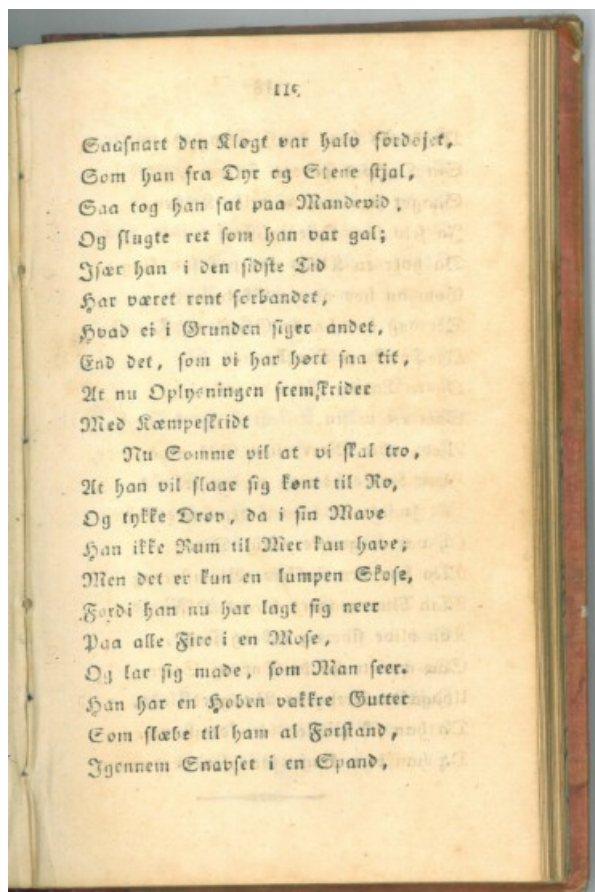 115
Saasnart den Kløgt var halv fordøjet,
Som han fra Dyr og Stene stjal,
Saa tog han fat paa Mandevid,
Og slugte ret som han var gal;
Især han i den sidste Tid
Har været rent forbandet,
Hvad ei i Grunden siger andet,
End det, som vi har hørt saa tit,
At nu Oplysningen fremskrider
Med Kæmpeskridt
Nu Somme vil at vi skal tro,
At han vil slaae sig kønt til Ro,
Og tykke Drøv, da i sin Mave
Han ikke Rum til Mer kan have;
Men det er kun en lumpen Skose,
Fordi han nu har lagt sig neer
Paa alle Fire i en Mose,
Og lar sig made, som Man seer.
Han har en Hoben vakkre Gutter
Som slæbe til ham al Forstand,
Igennem Snavset i en Spand,